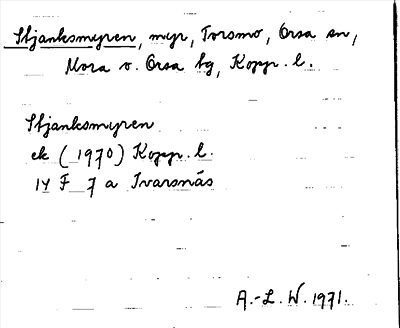 Stjanksmyren, myr, Torsmo, Orsa sn,
Mora o. Orsa tg, Kopp. l.
Stjanksmyren
ek (1970) Kopp. l.
14 F 7 a Ivarsnäs
A.-L. W. 1971.